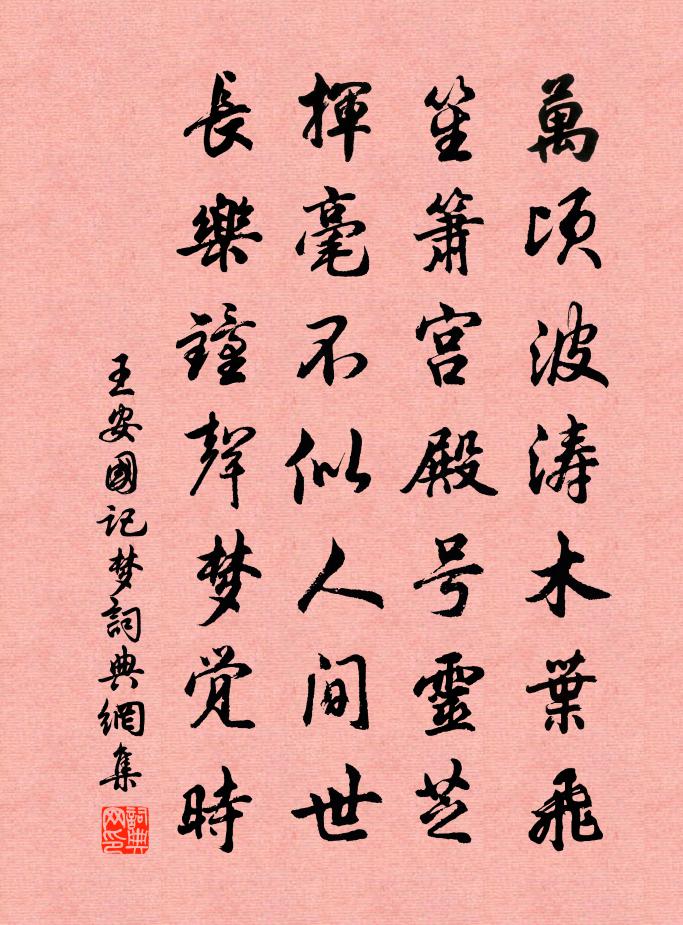 萬頃波涛木葉飛
笙簫宫殿号靈芝
揮毫不似人间世
長樂鐘聲梦觉時
王安國記梦詞典網集
詞典网印